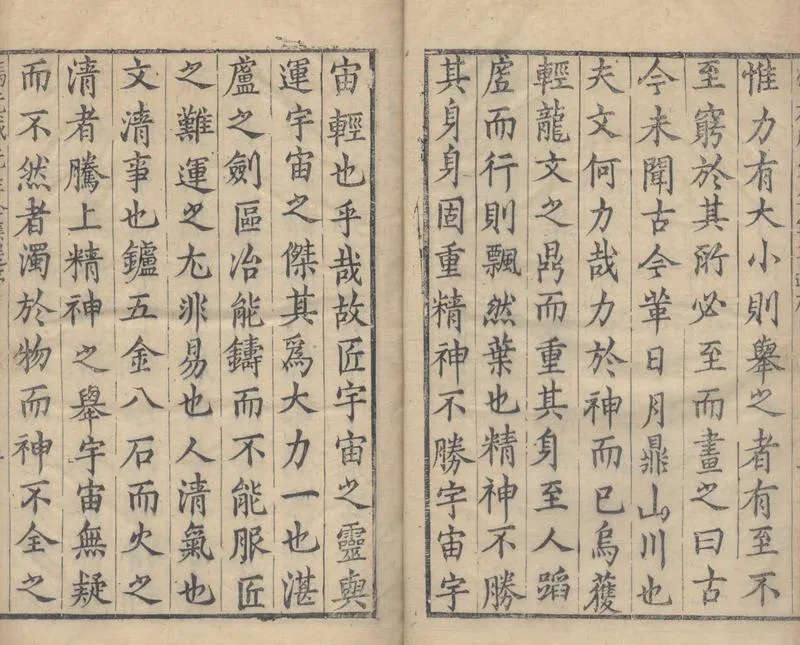 惟力有大小則舉之者有至不
至窮於其所必至而畫之曰古
今未聞古今葷日月鼎山川也
夫文何力哉力於神而已烏獲
輕龍文之鼎而重其身至人蹈
虗而行則飄然葉也精神不勝
其身身固重精神不勝宇宙宇
宙輕也乎哉故匠宇宙之靈與
運宇宙之傑其爲大力一也湛
盧之劍區冶能鑄而不能服匠
之難運之尢非易也人清氣也
文清事也鑪五金八石而火之
清者騰上精神之舉宇宙無疑
而不然者濁於物而神不全之